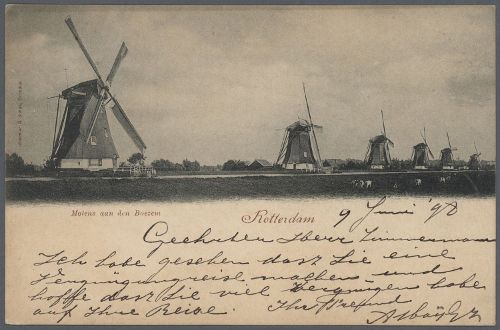 Molens aan den Boezem
Rotterdam
9 Juni 98
Geehrten Herr Zimmermann
Ich habe gesehen dasz Sie eine
Vergnügungreise machen und
hoffe dasz Sie viel Vergnugen habe
auf Ihre Reise. Ihr Freund